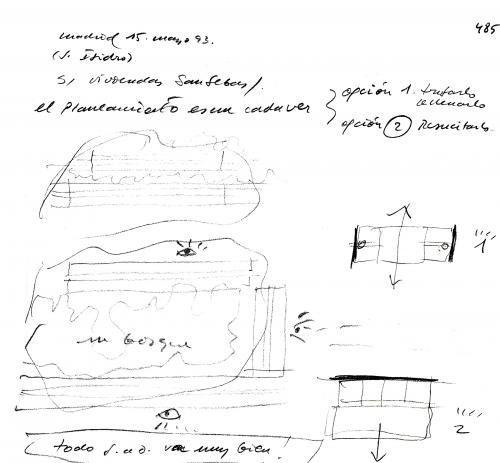 485
madrid 15. mayo 93.
(S. Isidro)
S/ viviendas Sanfebas/.
el Planeamiento es un cadaver
opción 1. trufarlo
rellenarlo
opción 2 Resucitarlo.
1
un bosque
2
todo va muy bien!